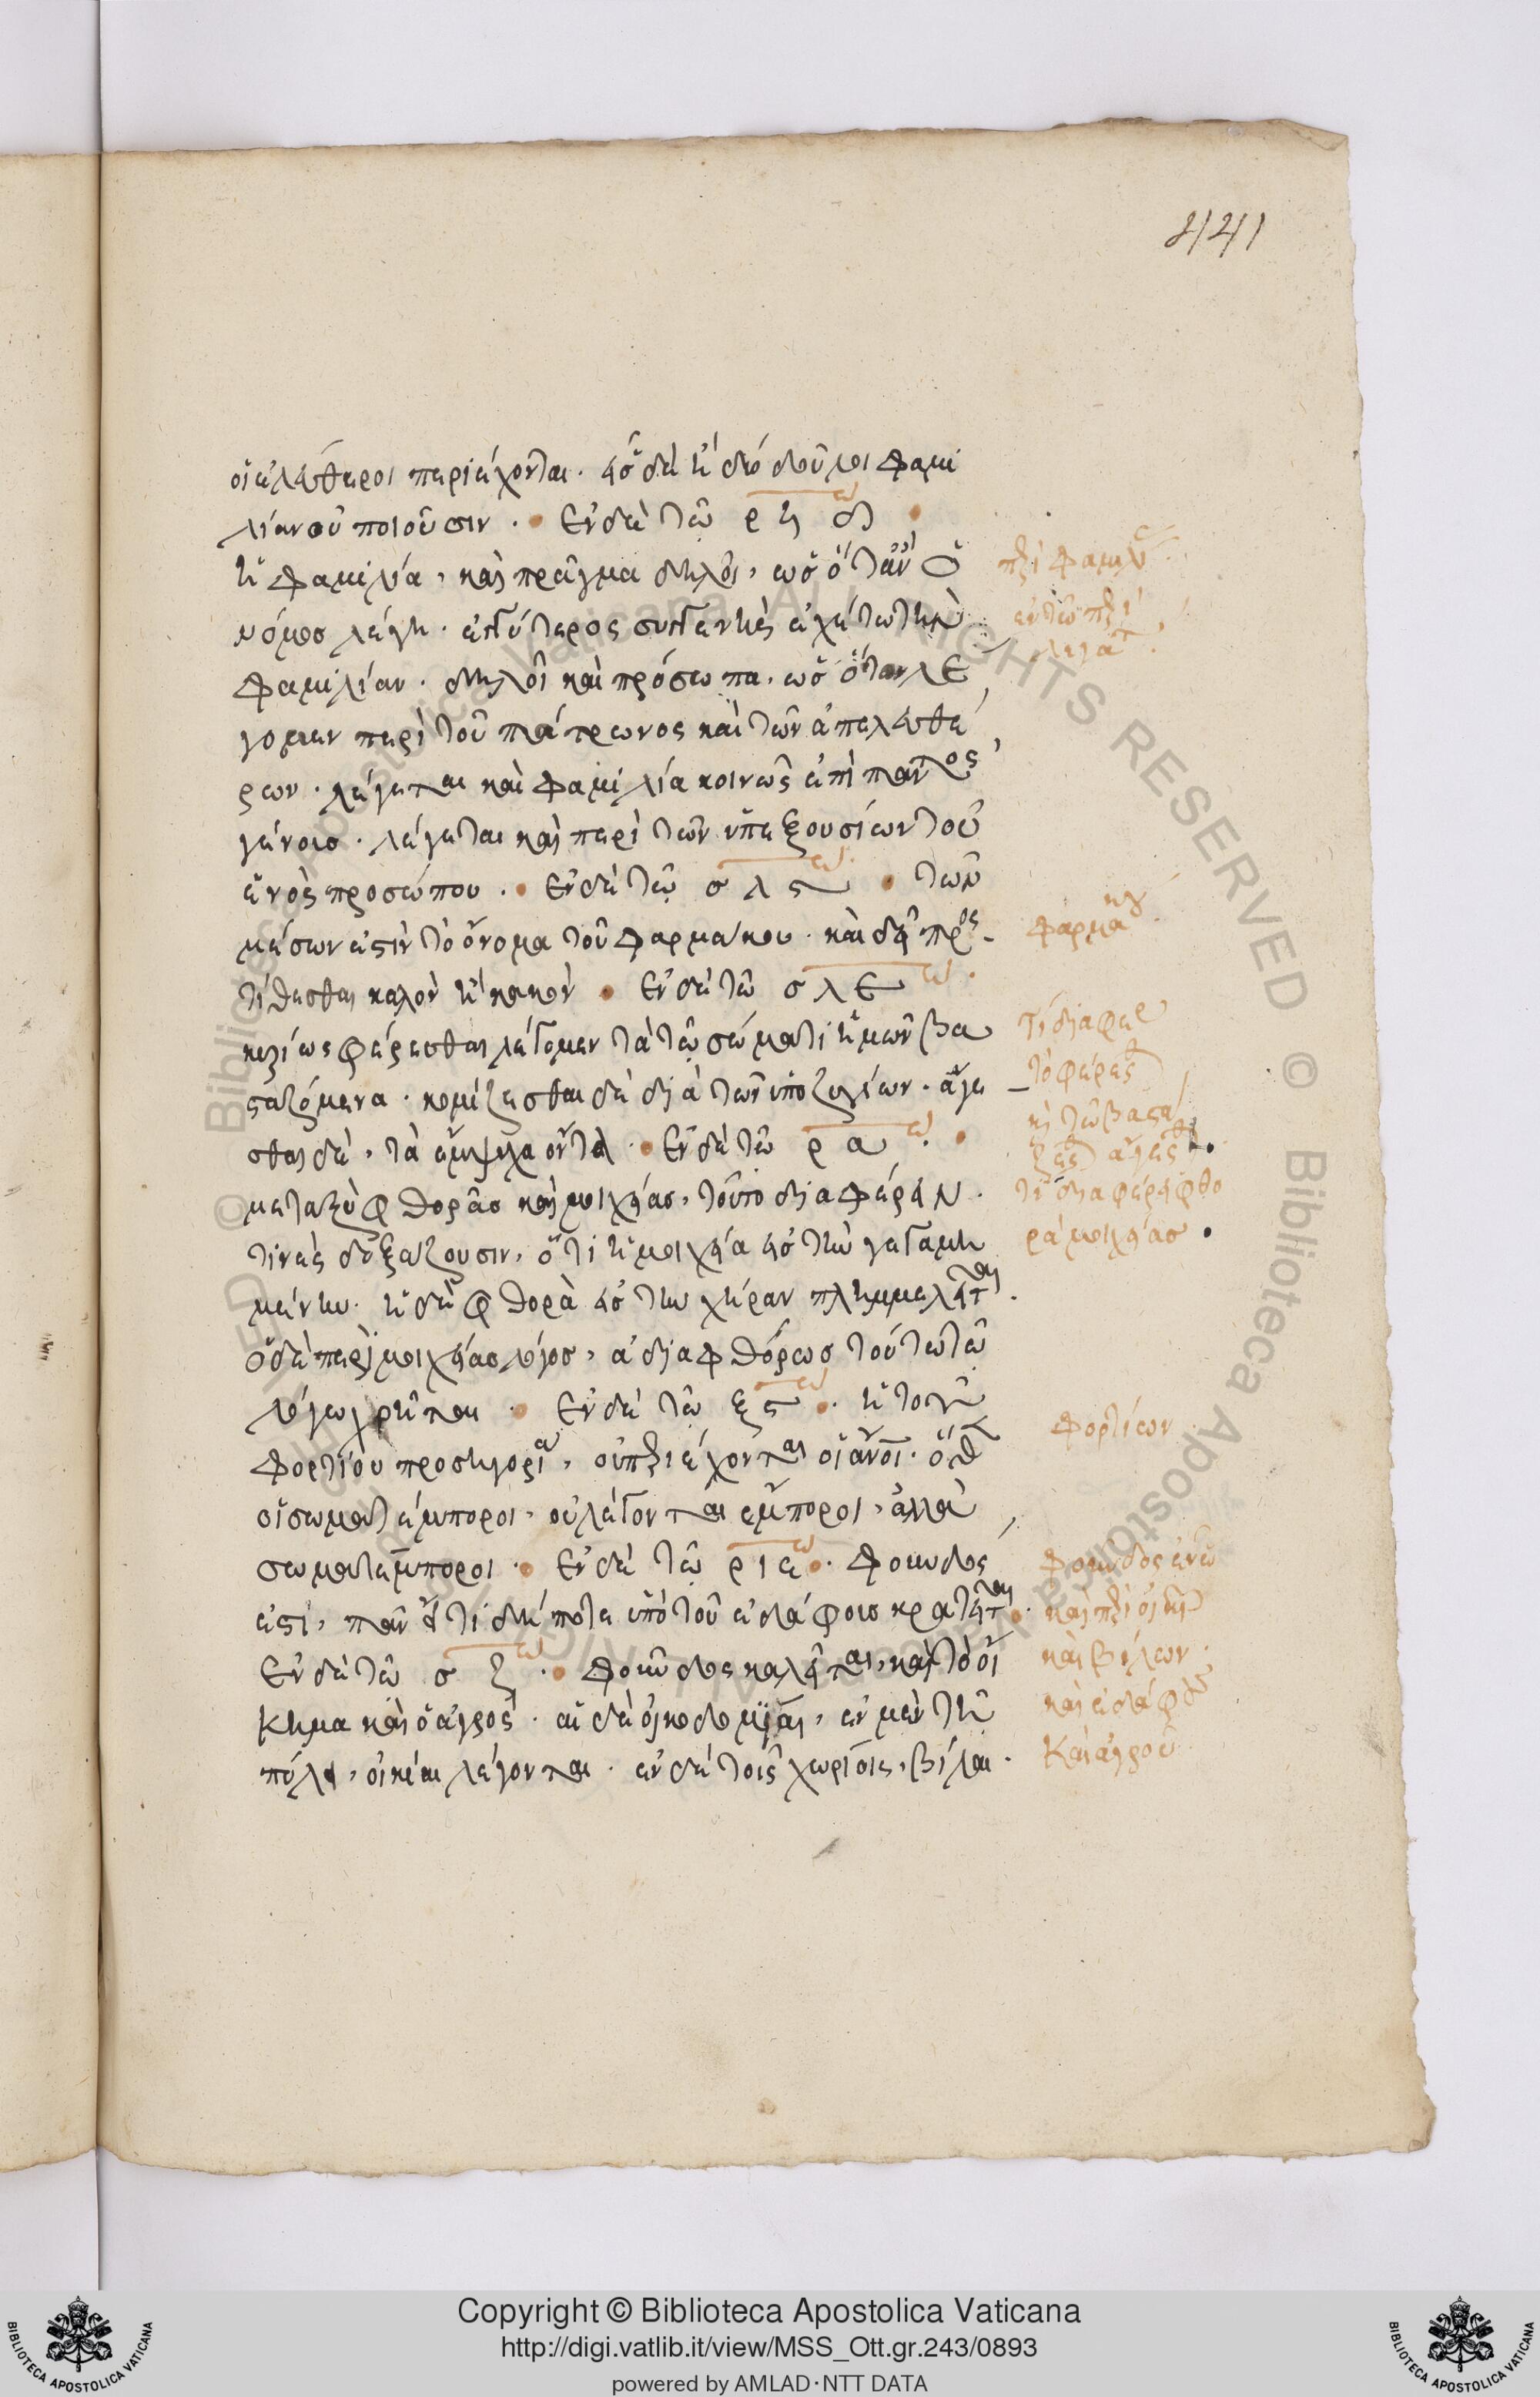 441
οἱ ἐλεύθεροι περιέχονται. εἰ δὲ ἢ δύο δοῦλοι φαμι
λίαν οὐ ποιοῦσιν. Ἐν δὲ τῷ ρη
ἡ φαμιλία, καὶ πρᾶγμα δηλοῖ, ὡς ὅταν ὁ
νόμος λέγη. ἐγγύτερος συγγενὴς ἐχέτω τὴν
φαμιλίαν. δηλοῖ καὶ πρόσωπα. ὡς ὅταν λέ
γομεν περὶ τοῦ πάτρωνος καὶ τῶν ἀπελευθέ
ρων. λέγεται καὶ φαμιλία κοινῶς ἐπὶ παντὸς
γένους. λέγεται καὶ περὶ τῶν ὑπεξουσίων τοῦ
ἑνὸς προσώπου. Ἐν δὲ τῷ σλς τῶν
μέσων ἐστὶν τὸ ὄνομα τοῦ φαρμάκου. καὶ δεῖ προσ
τίθεσθαι καλὸν ἢ κακόν Ἐν δὲ τῷ σλε
κυρίως φέρεσθαι λέγομεν τὰ τῷ σώματι ἡμῶν βα
σταζόμενα. κομίζεσθαι δὲ διὰ τῶν ὑποζυγίων. ἄγε
σθαι δὲ, τὰ ἔμψυχα ὄντα. Ἐν δὲ τῷ ρα
μεταξὺ φθορᾶς καὶ μοιχείας, τοῦτο διαφέρειν.
τινὲς δοξάζουσιν, ὅτι ἡ μοιχεία εἰς τὴν γεγαμη
μένην. ἡ δὲ φθορὰ εἰς τὴν χήραν πλημμελεῖται.
ὁ δὲ περὶ μοιχείας λόγος, ἀδιαφθόρως τούτω τῷ
λόγω χρῆται Ἐν δὲ τῷ ξς. ἡ τοῦ
φορτίου προσηγορία, οὐ περιέχονται οἱ ἄνοι. ὅθ
οἱ σωματέμποροι, οὐ λέγονται ἔμποροι, ἀλλὰ
σωματέμποροι. Ἐν δὲ τῷ ριε. φοῦνδος
ἐστι, πᾶν ὅ τι δήποτε ὑπὸ τοῦ ἐδάφους κρατεῖται.
Ἐν δὲ τῷ σ ζ. φοῦνδος καλεῖται, καὶ τὸ οἴ
κημα καὶ ὁ ἀγρός. αἱ δὲ οἰκοδομίαι, ἐν μὲν τῇ
πόλει, οἰκίαι λέγονται. ἐν δὲ τοῖς χωρίοις, βίλαι.
περὶ φαμιλι
ἐν τῷ περὶ
λεγάτ
φαρμακου
τί διαφερ
τὸ φέρεσθ
κ τῷ βαστά
ζεσθ ἄγεσθ
τί διαφέρει φθο
ρὰ μοιχείας
φορτίων
φοῦνδος ἐν ᾧ
καὶ περὶ οἰκη
καὶ βίλων
καὶ ἐδάφους
καὶ ἀγροῦ
Copyright © Biblioteca Apostolica Vaticana
http://digi.vatlib.it/view/MSS_Ott.gr.243/0893
powered by AMLAD·NTT DATA
BIBLIOTECA APOSTOLICA VATICANA
BIBLIOTECA APOSTOLICA VATICANA